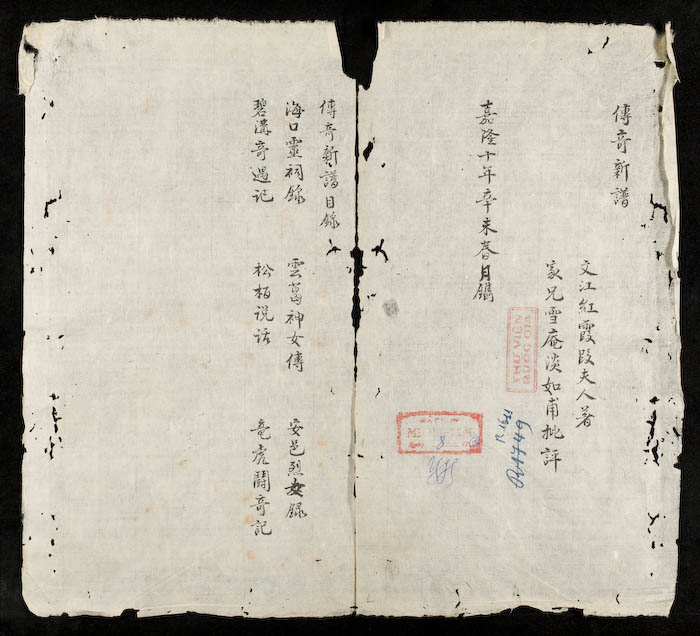 傳奇新譜
文江紅霞段夫人著
家兄雪庵淡如甫批評
嘉隆十年辛未春月鐫
THƯ VIỆN
QUỐC GIA
傳奇新譜目錄
海口靈祠錄 雲葛神女傳 安邑烈女錄
碧溝奇遇记 松柏说话 竜虎鬪奇記